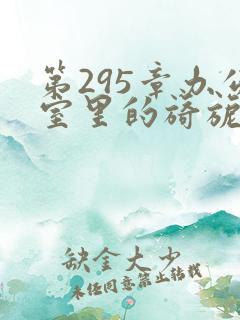 第295章办公
室里的旖旎
缺金大少
未经同意禁止转载